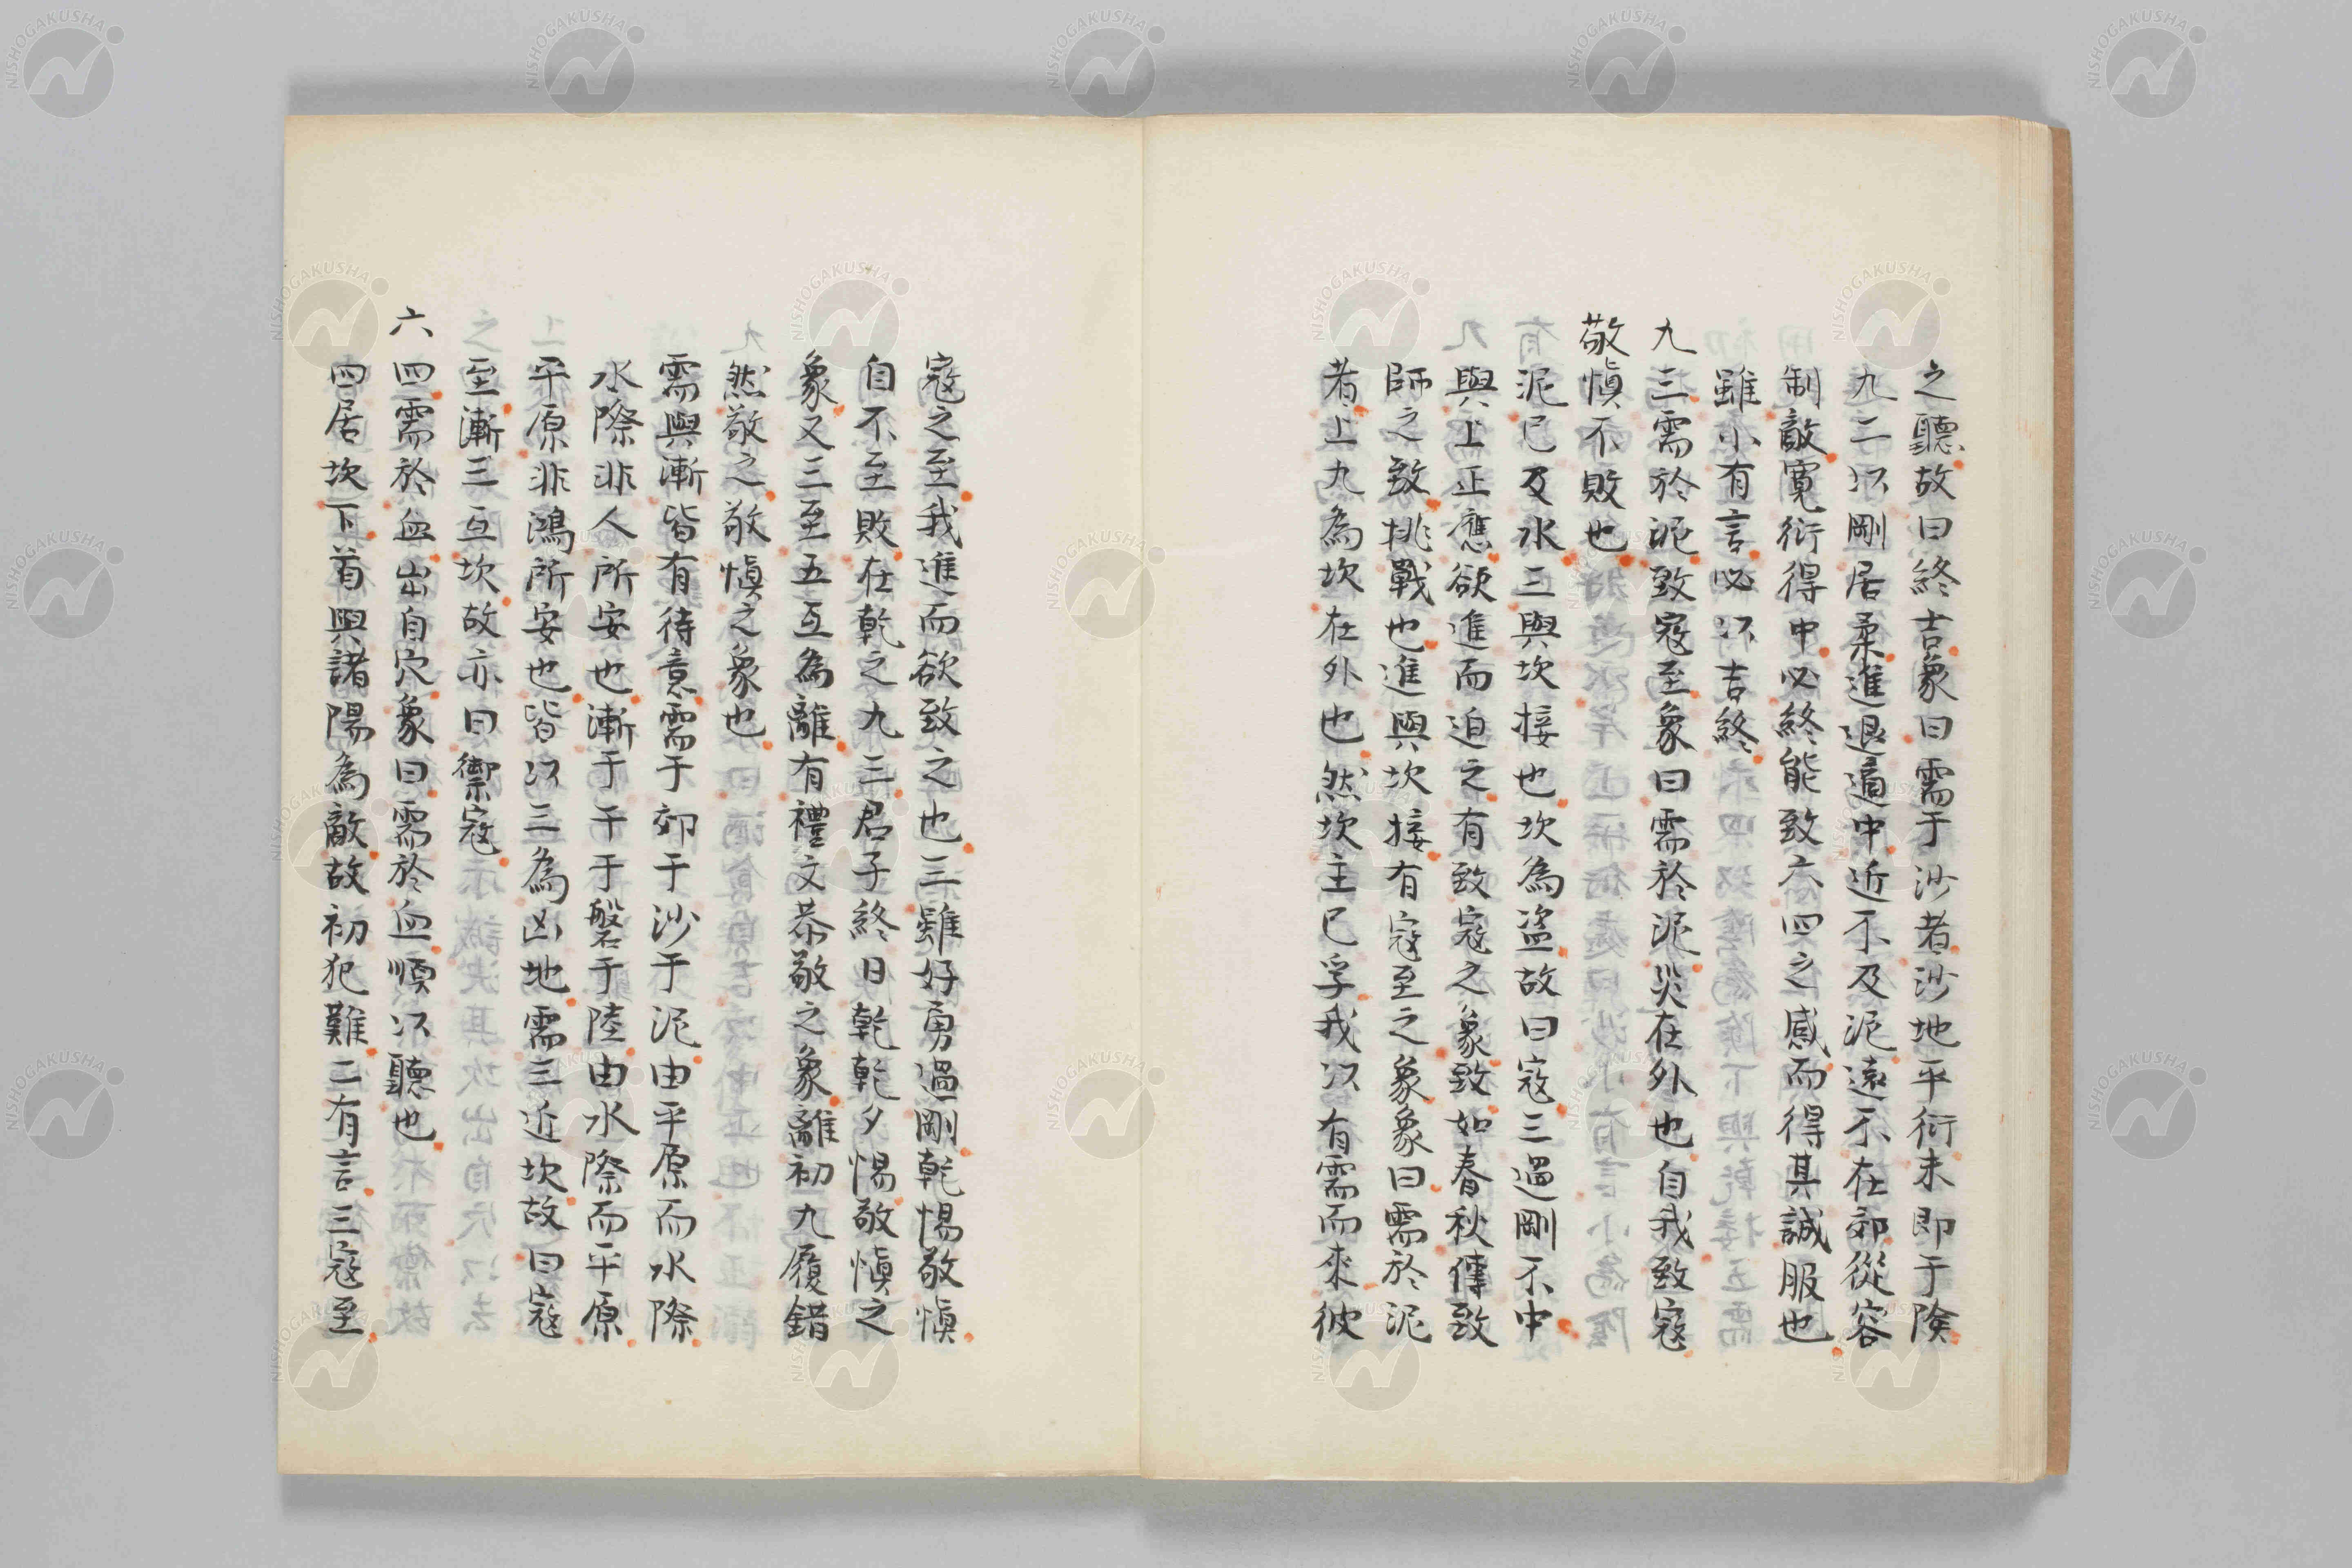 之聽故曰終吉象曰需于沙者沙地平衍未即于險
九二以剛居柔進退適中近不及泥遠不在郊從容
制敵寬衍得中必終能致六四之感而得其誠服也
雖小有言必以吉終
九三需於泥致寇至象曰需於泥災在外也自我致寇
敬慎不敗也
有泥已及水三與坎接也坎為盜故曰寇三過剛不中
與上正應欲進而迫之有致寇之象致如春秋傳致
師之致挑戰也進與坎接有寇至之象象曰需於泥
者上九為坎在外也然坎主已孚我以有需而來彼
寇之至我進而欲致之也三雖好勇過剛乾惕敬慎
自不至敗在乾之九三君子終日乾乾夕惕敬慎之
象又三至五互為離有禮文恭敬之象離初九履錯
然敬之敬慎之象也
需與漸皆有待意需于郊于沙于泥由平原而水際
水際非人所安也漸于干于磐于陸由水際而平原
平原非鴻所安也皆以三為凶地需三近坎故曰寇
至漸三互坎故亦曰禦寇
六四需於血出自穴象曰需於血順以聽也
四居坎下首與諸陽為敵故初犯難二有言三寇至
NISHOGAKUSHA